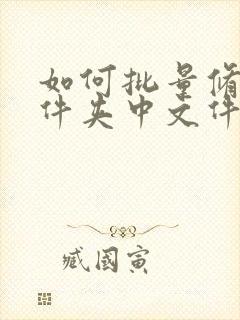 如何批量修
件夹中文件
臧国寅